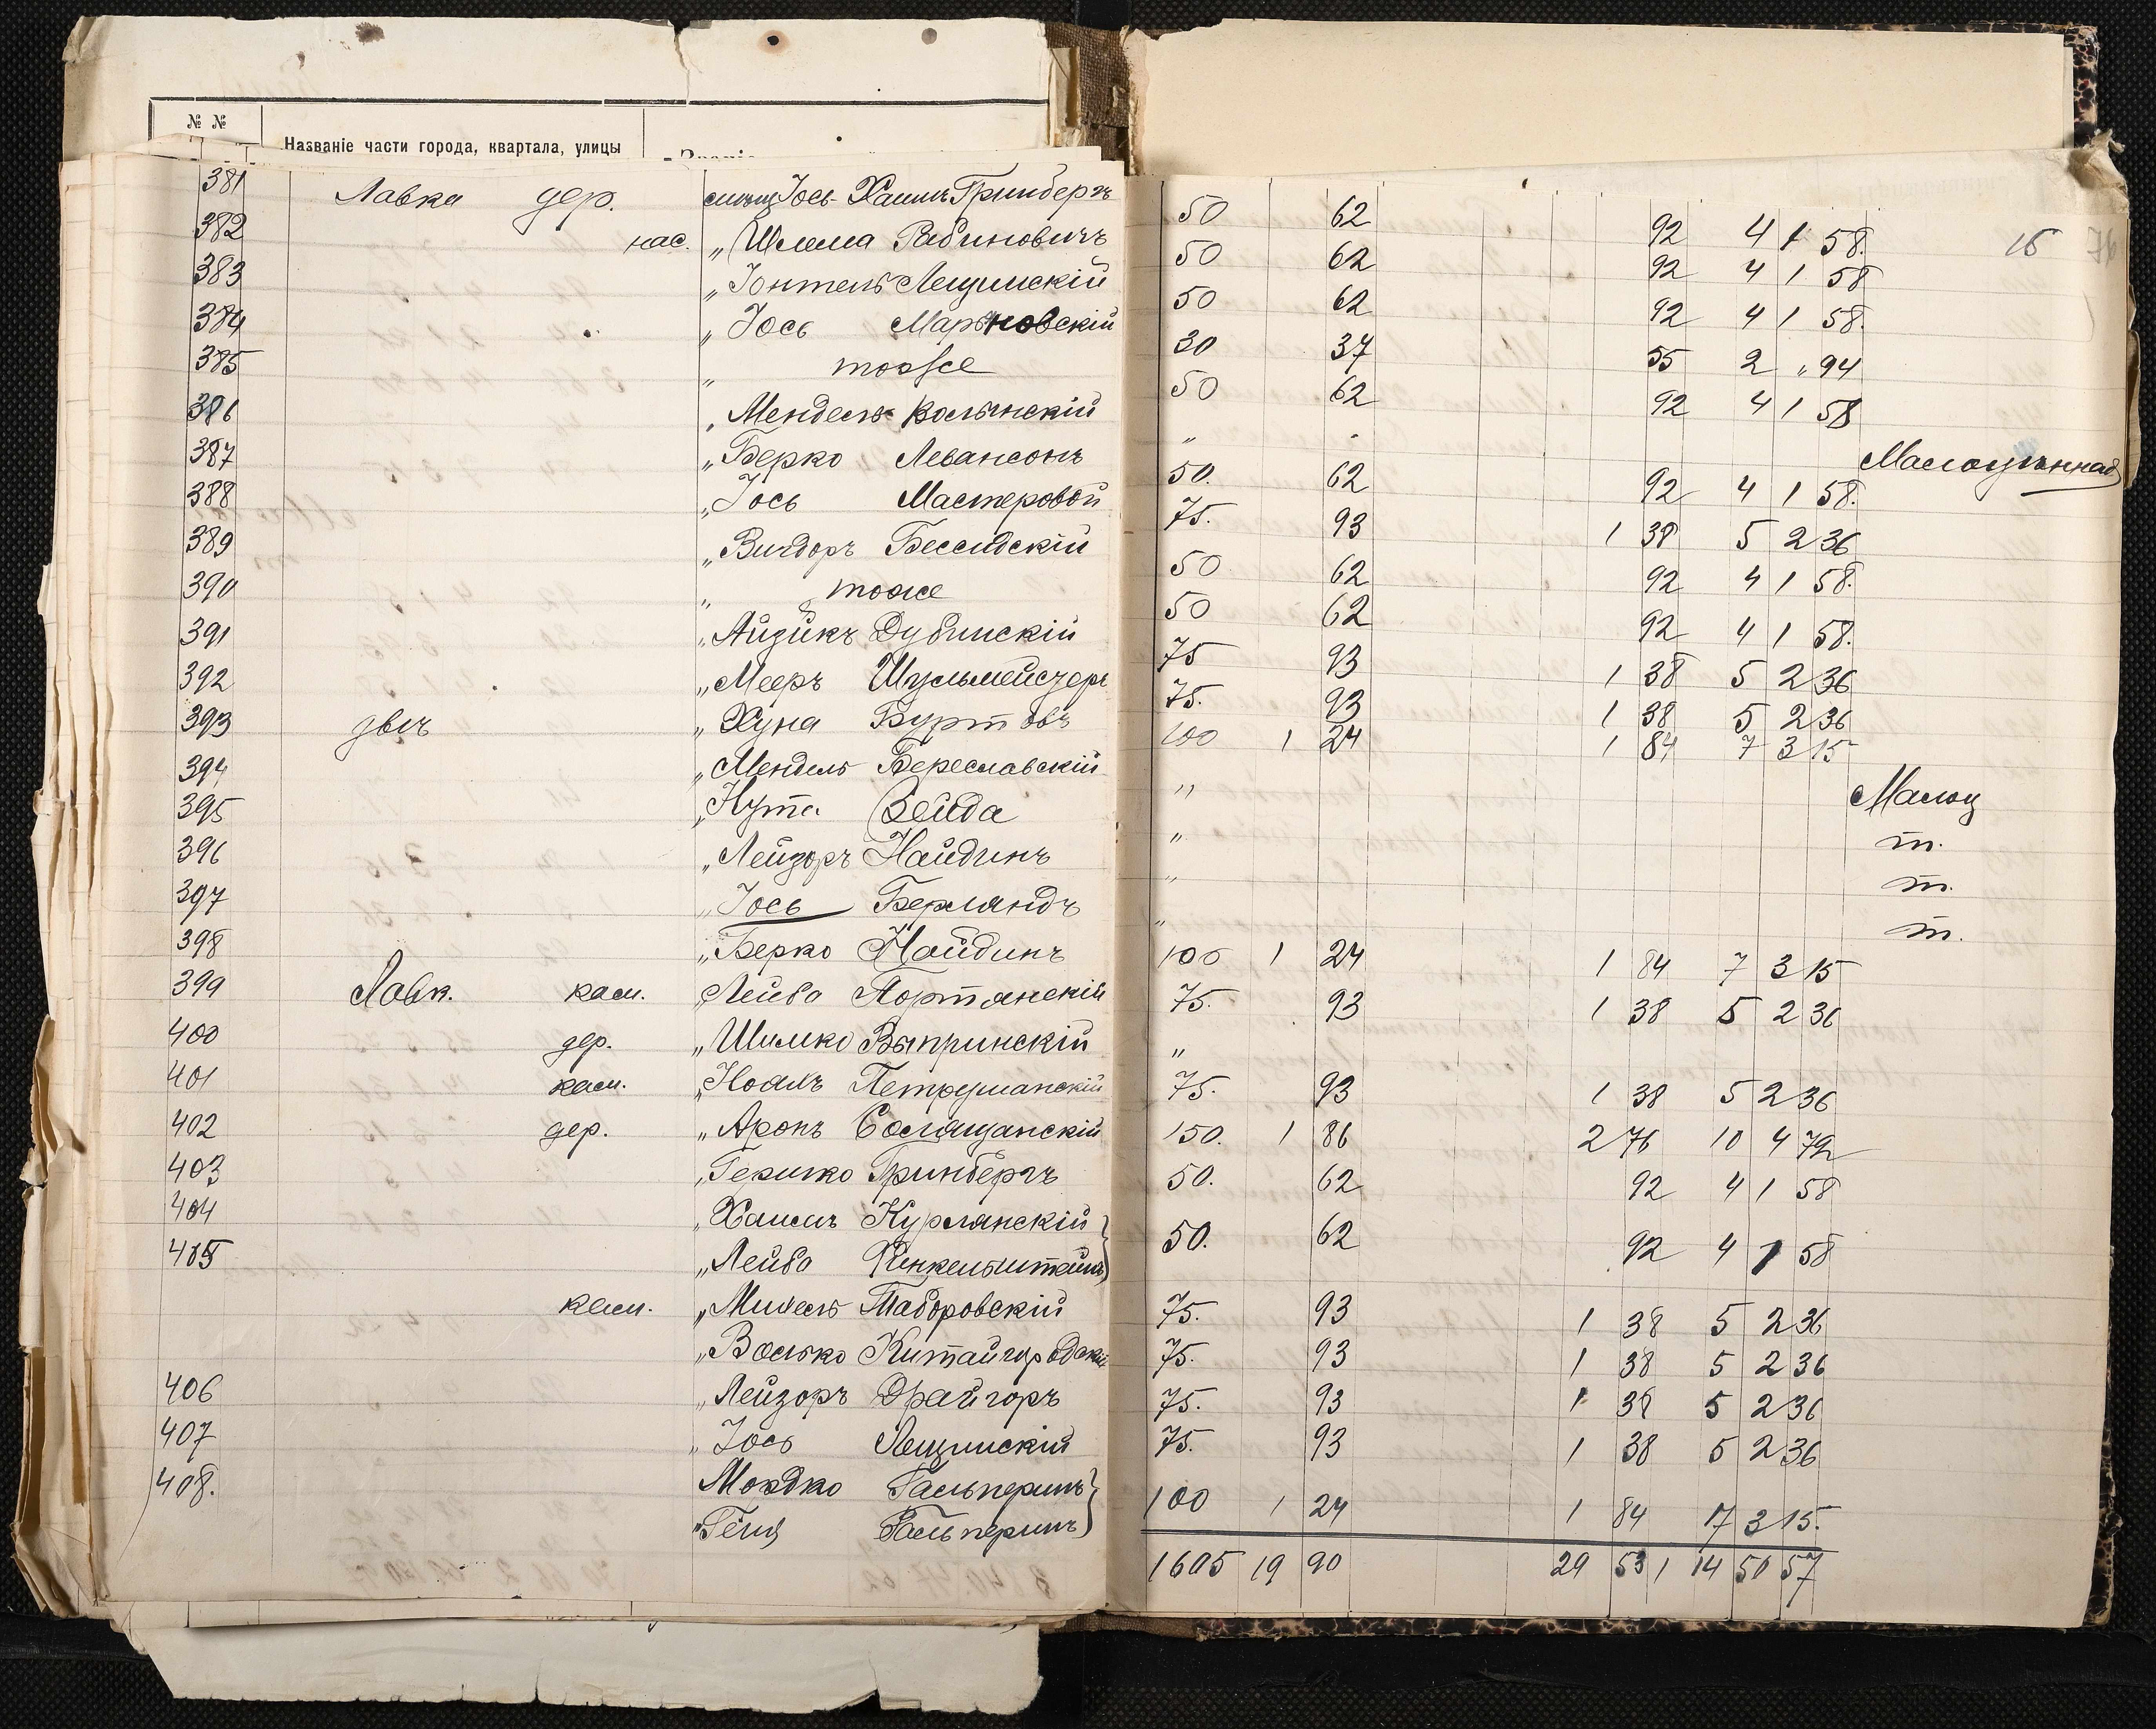 № №
Названіе части города, квартала, улицы
381 Лавка дер. Іось-Хаимъ Гринбергъ 50 62 92 4 1 58. 15
382 нас. „ Шлема Рабиновичъ 50 62 92 4 1 58
383 „ Іонтель Лещинскій 50 62 92 4 1 58.
384 „ Іось Марьяновскій 30 37 55 2 „ 94
385 „ тоже 50 62 92 4 1 58
386 „ Мендель Волынскій „
387 „ Берко Левансонъ 50. 62 92 4 1 58.
388 „ Іось Мастеровой 75. 93 1 38 5 2 36
389 „ Вигдоръ Бессидскій 50 62 92 4 1 58.
390 „ тоже 50 62 92 4 1 58.
391 „ Айзикъ Дубинскій 75 93 1 38 5 2 36
392 „ Мееръ Шульмейстеръ 75. 93 1 38 5 2 36
393 „ Хуна 100 1 24 1 84 7 3 15
394 „ Мендель Береславскій „ Малоц
395 „ Нута Бейда „ т.
396 „ Лейзоръ Найдинъ „ т.
397 „ Іось Берляндъ „ т.
398 „ Берко Найдинъ 100 1 24 1 84 7 3 15
399 Лавк. кам. „ Лейба Портянскій 75. 93 1 38 5 2 36
400 дер. „ Шимко „
401 кам. „ 75. 93 1 38 5 2 36
402 дер. „ Аронъ 150. 1 86 2 76 10 4 72
403 „ Гершко Гринбергъ 50. 62 92 4 1 58
404 „ Хаимъ Курлянскій 50. 62 92 4 1 58
405 „ Лейба Финкельштейнъ
кам. „ Михель Таборовскій 75. 93 1 38 5 2 36
„ Волько Китайгородскій 75. 93 1 38 5 2 36
406 „ Лейзоръ Драйгоръ 75. 93 1 38 5 2 36
407 „ Іось Лещинскій 75. 93 1 38 5 2 36
408. Мордко Гальперинъ 100 1 24 1 84 7 3 15.
„ Геня Гальперинъ
1605 19 90 29 53 1 14 50 57